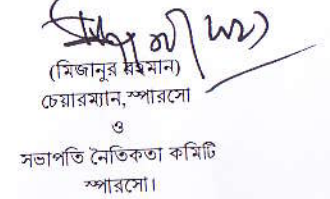 (মিজানুর রহমান)
চেয়ারম্যান, স্পারসো
ও
সভাপতি নৈতিকতা কমিটি
স্পারসো।